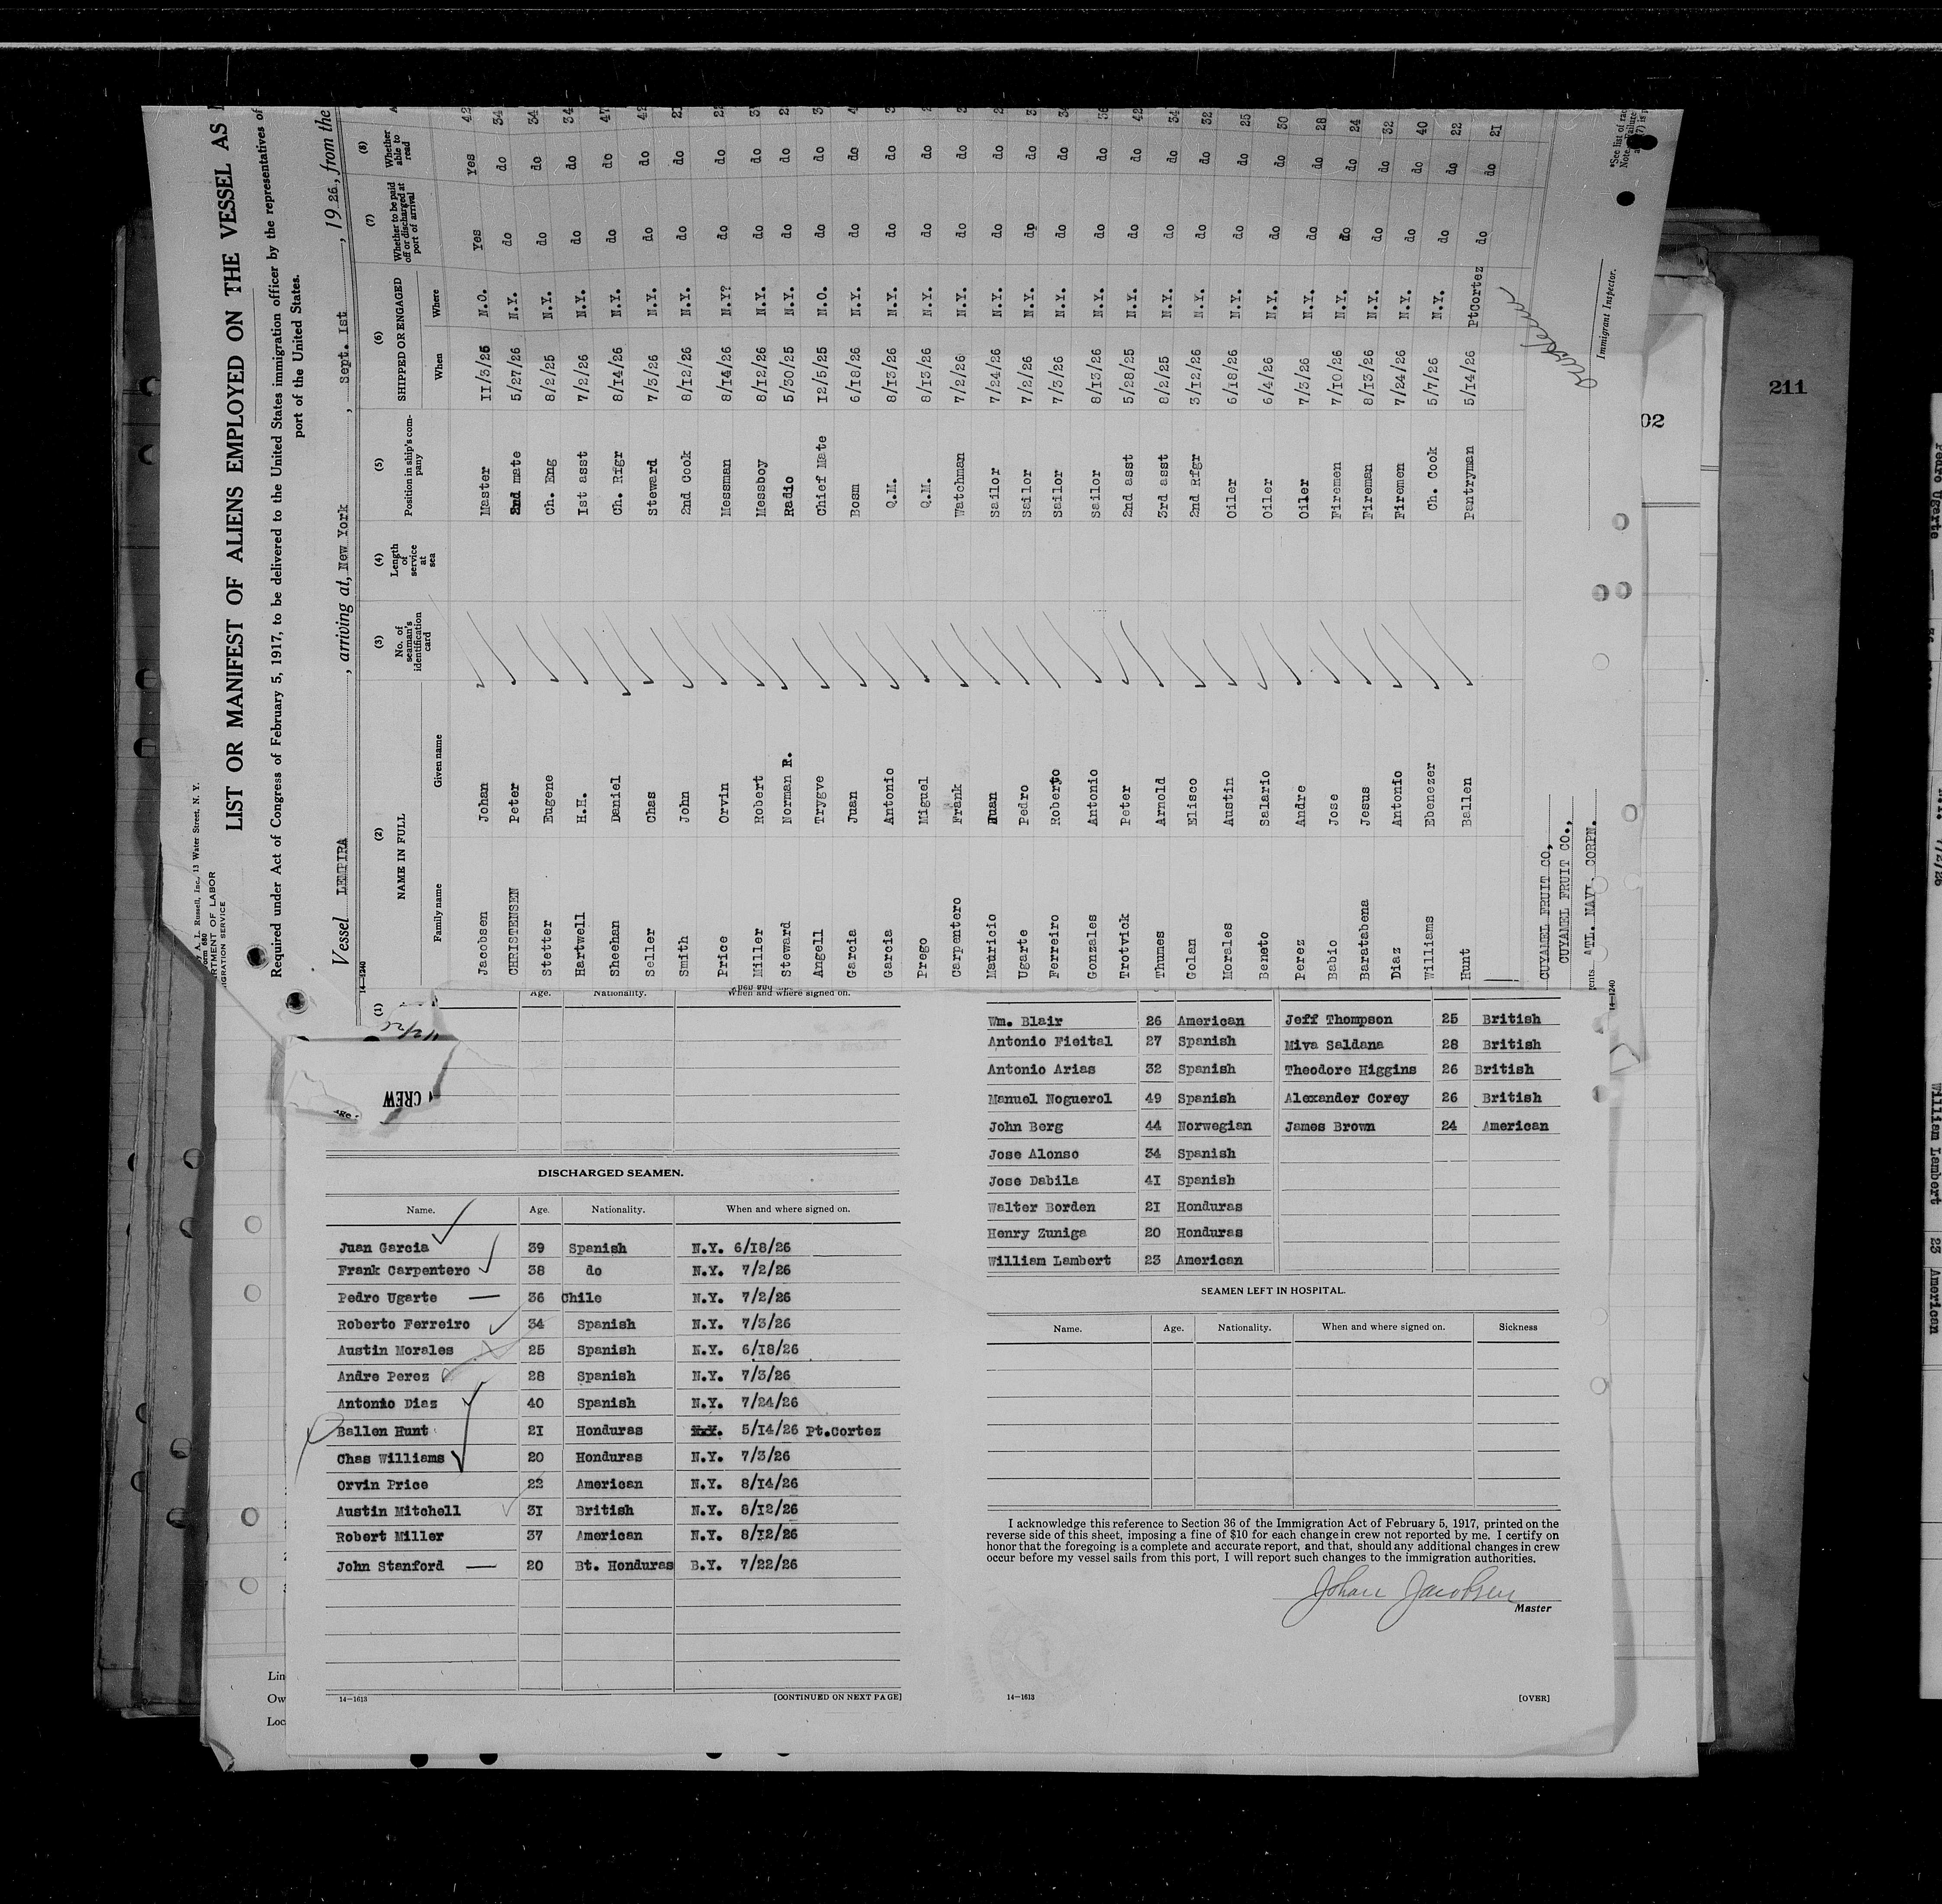 LIST OR MANIFEST OF ALIENS EMPLOYED ON THE VESSEL AS
Required under Act of Congress of February 5, 1917, to be delivered to the United States immigration officer by the representatives of
port of the United States.
A. L. Russell, Inc., 13 Water Street, N. Y.
Vessel LEMPIRA, arriving at, New York, Sept. 1st, 1926, from the
14—1240
(1) (2) (3) (4) (5) (6) (7) (8)
NAME IN FULL No. of seaman's identification card Length of service at sea Position in ship's company SHIPPED OR ENGAGED Whether to be paid off or discharged at port of arrival Whether able to read
Family name Given name When Where
Jacobsen Johan Master 11/3/25 N.O. Yes Yes 42
CHRISTENSEN Peter 2nd mate 5/27/26 N.Y. do do 34
Stetter Eugene Ch. Eng 8/2/25 N.Y. do do 34
Hartwell H.H. Ist asst 7/2/26 N.Y. do do 34
Sheehan Daniel Ch. Rfgr 8/I4/26 N.Y. do do 47
Seller Chas Steward 7/3/26 N.Y. do do 42
Smith John 2nd Cook 8/I2/26 N.Y. do do
Price Orvin Messman 8/I4/26 N.Y? do do
Miller Robert Messboy 8/I2/26 N.Y. do do
Steward Norman R. Radio 5/30/25 N.Y. do do
Angell Trygve Chief Mate I2/5/25 N.O. do do
Garcia Juan Bosm 6/I8/26 N.Y. do do
Garcia Antonio Q.M. 8/I3/26 N.Y. do do
Prego Miguel Q.M. 8/I3/26 N.Y. do do
Carpentero Frank Watchman 7/2/26 N.Y. do do
Mauricio Juan Sailor 7/24/26 N.Y. do do
Ugarte Pedro Sailor 7/2/26 N.Y. do do
Ferreiro Roberto Sailor 7/3/26 N.Y. do do
Gonzales Antonio Sailor 8/I3/26 N.Y. do do
Trotvick Peter 2nd asst 5/28/25 N.Y. do do 42
Thumes Arnold 3rd asst 8/2/25 N.Y. do do 34
Golan Elisco 2nd Rfgr 3/I2/26 N.Y. do do 32
Morales Austin Oiler 6/I8/26 N.Y. do do 25
Beneto Salario Oiler 6/4/26 N.Y. do do 30
Perez Andre Oiler 7/3/26 N.Y. do do 28
Babio Jose Firemen 7/I0/26 N.Y. do do 24
Baratabena Jesus Fireman 8/I3/26 N.Y. do do 32
Diaz Antonio Firemen 7/24/26 N.Y. do do 40
Williams Ebenezer Ch. Cook 5/7/26 N.Y. do do 22
Hunt Ballen Pantryman 5/I4/26 PtCortez do do 2I
CUYAMEL FRUIT CO,
CUYAMEL FRUIT CO.,
ATL. NAVI. CORPN.
Immigrant Inspector.
14—1240
211
02
CREW
Age. Nationality. When and where signed on.
DISCHARGED SEAMEN.
Name. Age. Nationality. When and where signed on.
Juan Garcia 39 Spanish N.Y. 6/I8/26
Frank Carpentero 38 do N.Y. 7/2/26
Pedro Ugarte — 36 Chile N.Y. 7/2/26
Roberto Ferreiro 34 Spanish N.Y. 7/3/26
Austin Morales 25 Spanish N.Y. 6/I8/26
Andre Perez 28 Spanish N.Y. 7/3/26
Antonio Diaz 40 Spanish N.Y. 7/24/26
Ballen Hunt 2I Honduras 5/I4/26 Pt.Cortez
Chas Williams 20 Honduras N.Y. 7/3/26
Orvin Price 22 American N.Y. 8/I4/26
Austin Mitchell 3I British N.Y. 8/I2/26
Robert Miller 37 American N.Y. 8/I2/26
John Stanford — 20 Bt. Honduras B.Y. 7/22/26
14—1613 [CONTINUED ON NEXT PAGE]
Wm. Blair 26 American Jeff Thompson 25 British
Antonio Fieital 27 Spanish Miva Saldana 28 British
Antonio Arias 32 Spanish Theodore Higgins 26 British
Manuel Noguerol 49 Spanish Alexander Corey 26 British
John Berg 44 Norwegian James Brown 24 American
Jose Alonso 34 Spanish
Jose Dabila 4I Spanish
Walter Borden 2I Honduras
Henry Zuniga 20 Honduras
William Lambert 23 American
SEAMEN LEFT IN HOSPITAL.
Name. Age. Nationality. When and where signed on. Sickness
I acknowledge this reference to Section 36 of the Immigration Act of February 5, 1917, printed on the
reverse side of this sheet, imposing a fine of $10 for each change in crew not reported by me. I certify on
honor that the foregoing is a complete and accurate report, and that, should any additional changes in crew
occur before my vessel sails from this port, I will report such changes to the immigration authorities.
Johan Jacobsen
Master
14—1613 [OVER]
Lin
Ow
Loc
Pedro Ugarte
7/2/26
William Lambert 23 American